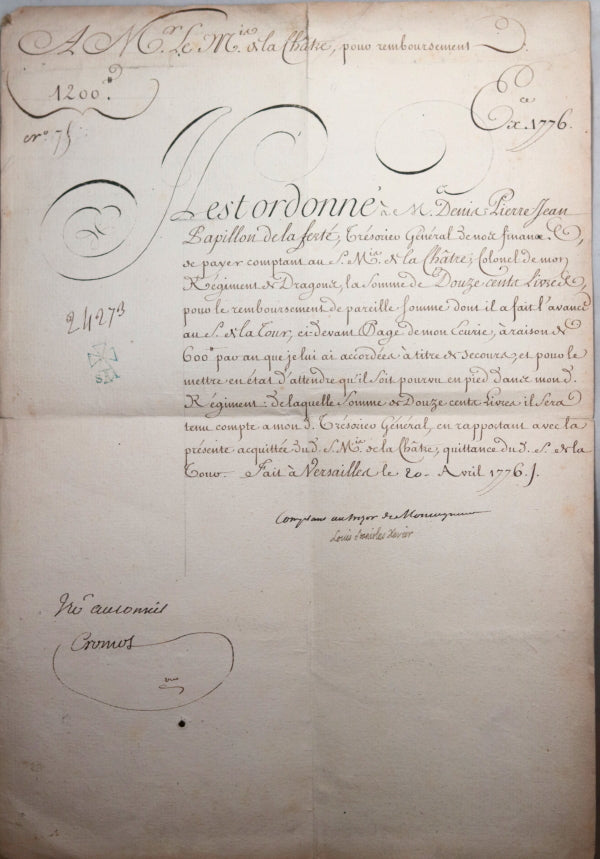 A Mr. Le Mis. de la Châtre, pour remboursement D.
1200.tt
Ece.
n.o 75
Ex. 1776.
Il est ordonné à M. Denis Pierre Jean
Papillon de la ferté, Trésorier Général de nos finances,
de payer comptant au S. Mis. de la Châtre, Colonel de mon
Régiment de Dragons, la somme de Douze cents Livres,
pour le remboursement de pareille somme dont il a fait l'avance
au S. de la Tour, ci-devant Page de mon Ecurie, à raison de
600.tt par an que je lui ai accordées à titre de secours, et pour le
mettre en état d'attendre qu'il soit pourvu en pied dans mon d.
Régiment: de laquelle somme de Douze cents Livres il sera
tenu compte a mon d. Trésorier Général, en rapportant avec la
présente acquittée du d. S. Mis. de la Châtre, quittance du d. S. de la
Tour. Fait à Versailles le 20. Avril 1776.
24273
Comptant au trésor de Monseigneur
Louis Stanislas Xavier
Cromot